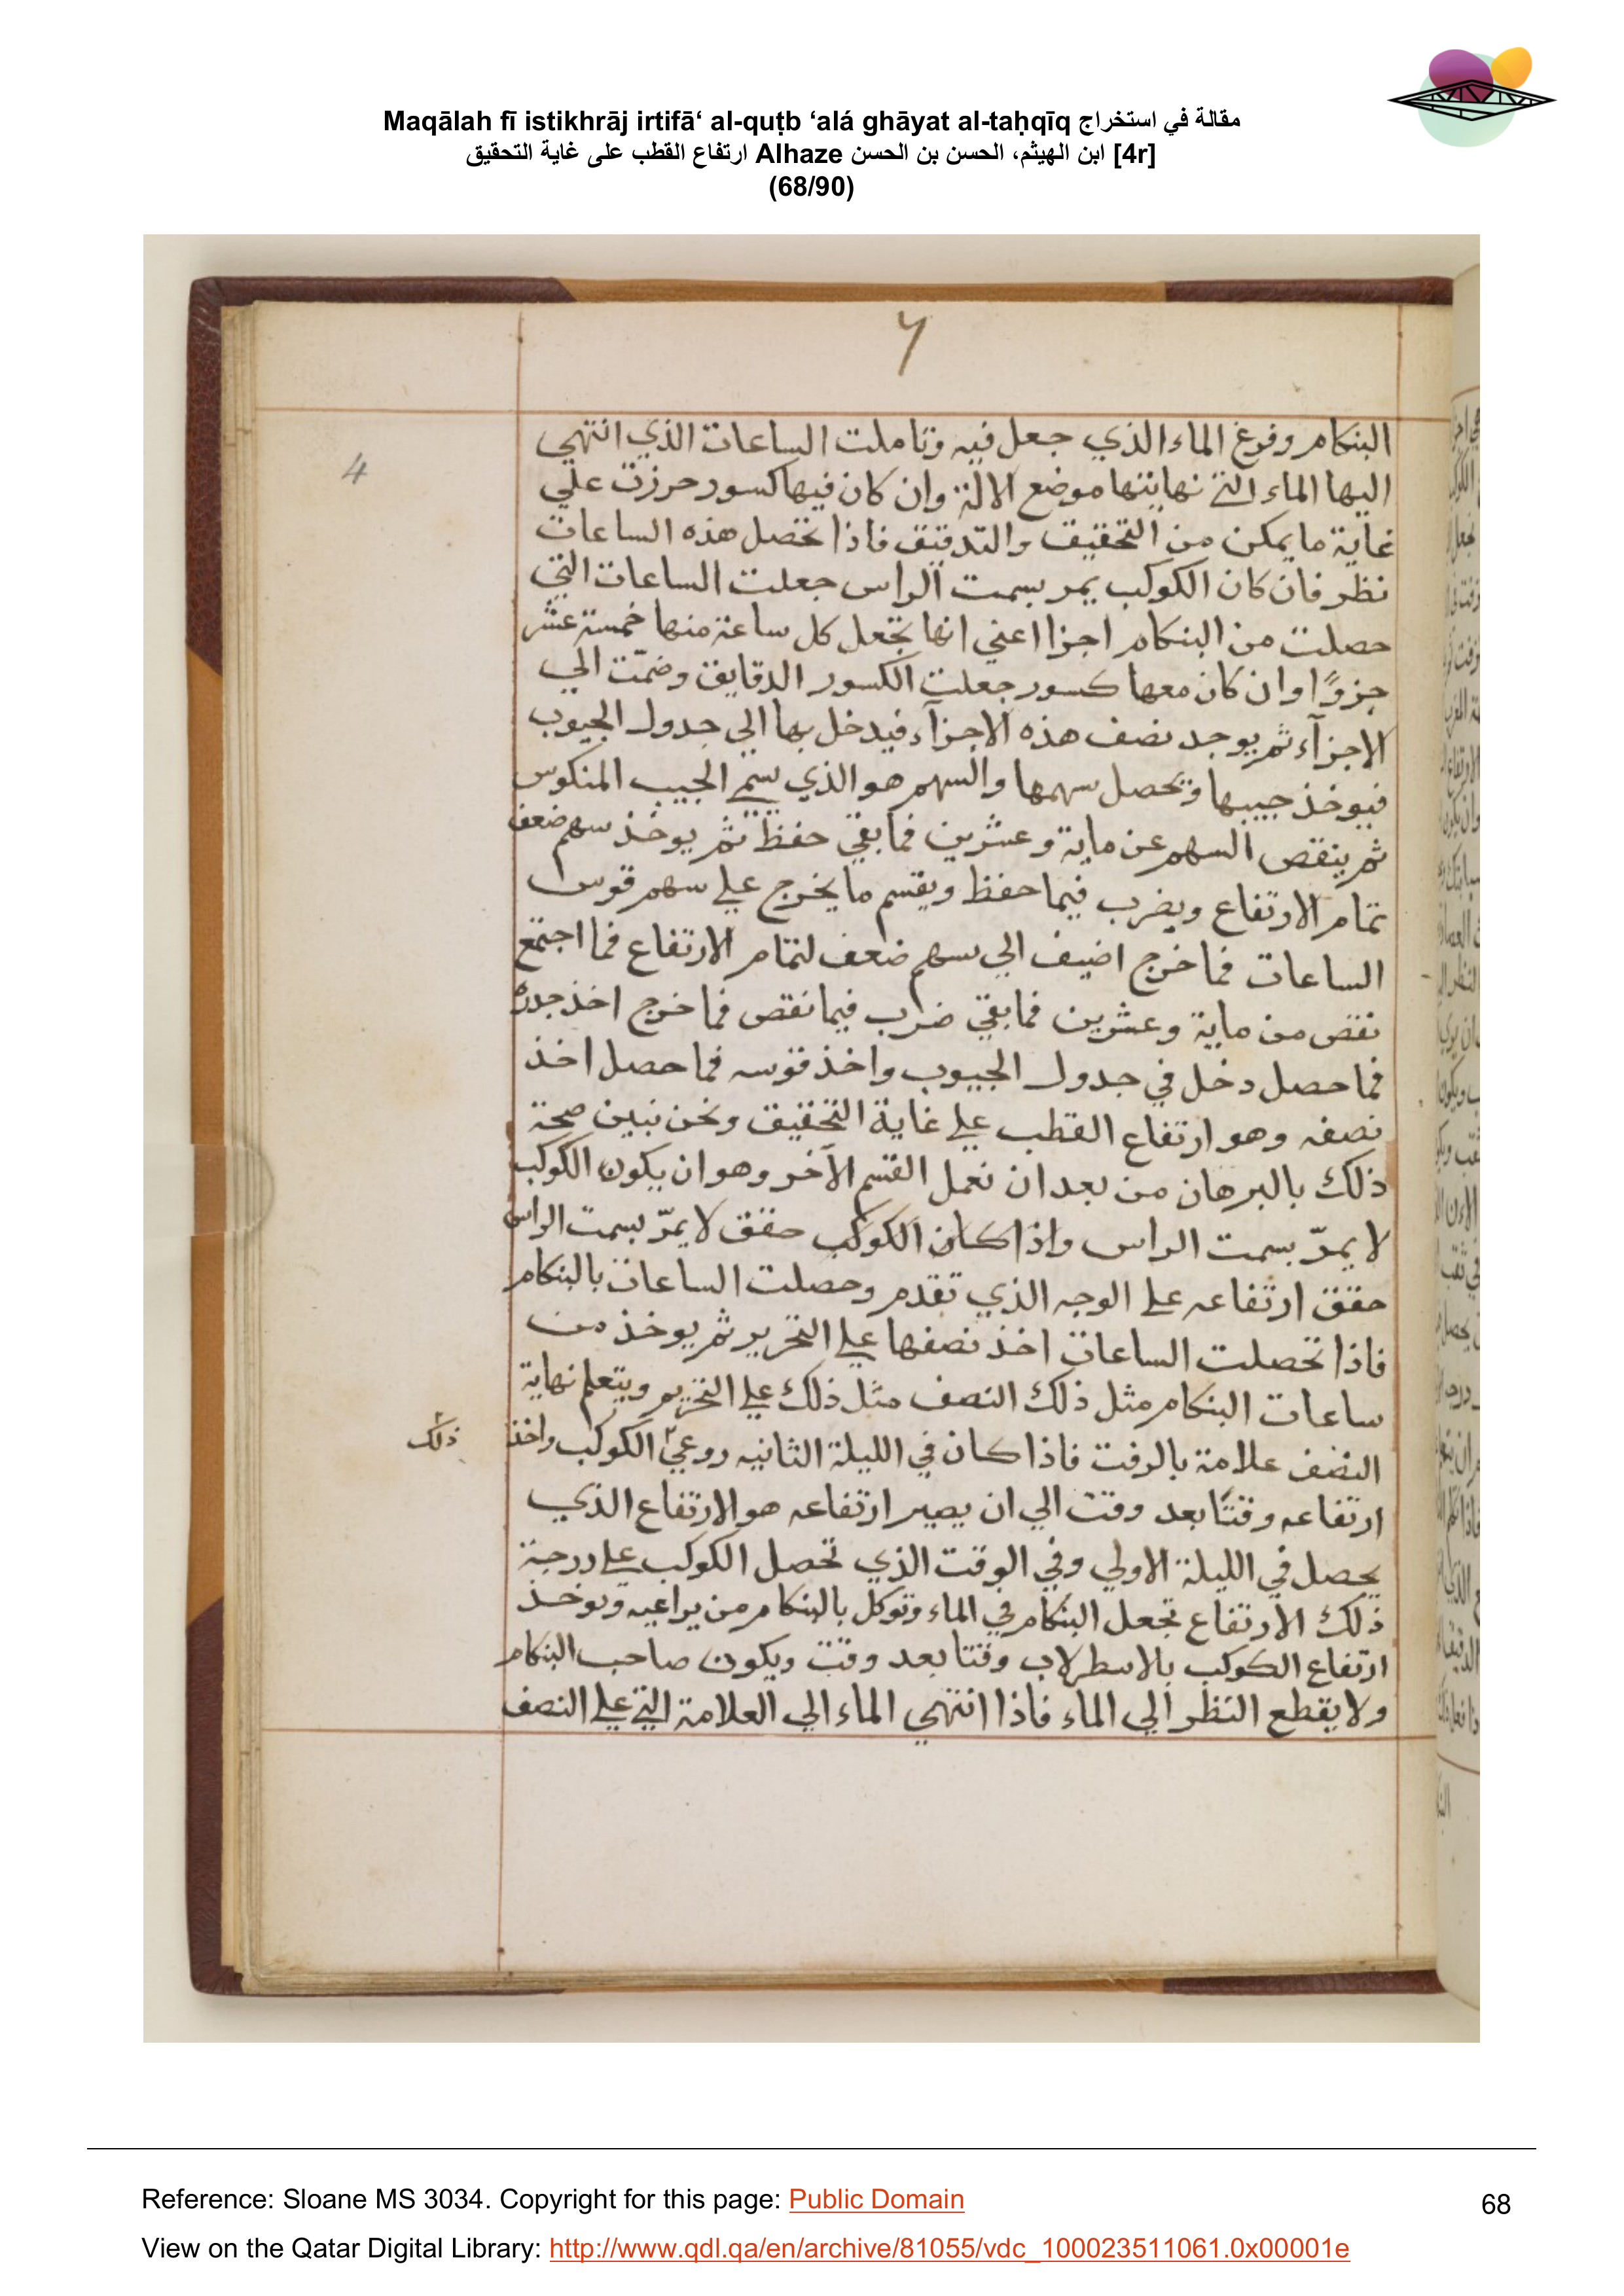 Maqālah fī istikhrāj irtifā‘ al-quṭb ‘alá ghāyat al-taḥqīq مقالة في استخراج
ارتفاع القطب على غاية التحقيق Alhaze ابن الهيثم، الحسن بن الحسن [4r]
(68/90)
4
البنكام وفوغ الماء الذي جعل فيه وتاملت الساعات الذي انتهي
اليها الماء التي نهايتها موضع الالة وان كان فيها كسور حرزت علي
غاية ما يمكن من التحقيق والتدقيق فاذا تحصل هذه الساعات
نظر فان كان الكوكب يمر بسمت الراس جعلت الساعات التي
حصلت من البنكام اجزا اعني انها تجعل كل ساعة منها خمسة عشر
جزوًا وان كان معها كسور جعلت الكسور الدقايق وضمّت الي
الاجزآء ثم يوجد نصف هذه الاجزآء فيدخل بها الي جدول الجيوب
فيوخذ جيبها وتحصل سهمها والسهم هو الذي يسمي الجيب المنكوس
ثم ينقص السهم عن ماية وعشرين فما بقي حفظ ثم يوخذ سهم ضعف
تمام الارتفاع ويضرب فيما حفظ ويقسم ما يخرج علي سهم قوس
الساعات فما خرج اضيف الي سهم ضعف لتمام الارتفاع فما اجتمع
نقص من ماية وعشرين فما بقي ضرب فيما نقص فما خرج اخذ جدره
فما حصل دخل في جدول الجيوب واخذ قوسه فما حصل اخذ
نصفه وهو ارتفاع القطب علي غاية التحقيق ونحن نبين صحة
ذلك بالبرهان من بعد ان نعمل القسم الآخر وهو ان يكون الكوكب
لا يمرّ بسمت الراس واذا كان الكوكب حقق لا يمرّ بسمت الراس
حقق ارتفاعه علي الوجه الذي تقدم وحصلت الساعات بالبنكام
فاذا تحصلت الساعات اخذ نصفها علي التحرير ثم يوخذ من
ساعات البنكام مثل ذلك النصف مثل ذلك علي التحرير ويتعلم نهاية
النصف علامة بالرفت فاذا كان في الليلة الثانيه روعي الكوكب واخذ
ذلك
ارتفاعه وقتًا بعد وقت الي ان يصير ارتفاعه هو الارتفاع الذي
يحصل في الليلة الاولي وفي الوقت الذي تحصل الكوكب علي درجة
ذلك الارتفاع تجعل البنكام في الماء وتوكل بالبنكام من يراعيه ويوخذ
ارتفاع الكوكب بالاسطرلاب وقتا بعد وقت ويكون صاحب البنكام
ولا يقطع النظر الي الماء فاذا انتهي الماء الي العلامة التي علي النصف
Reference: Sloane MS 3034. Copyright for this page: Public Domain
68
View on the Qatar Digital Library: http://www.qdl.qa/en/archive/81055/vdc_100023511061.0x00001e